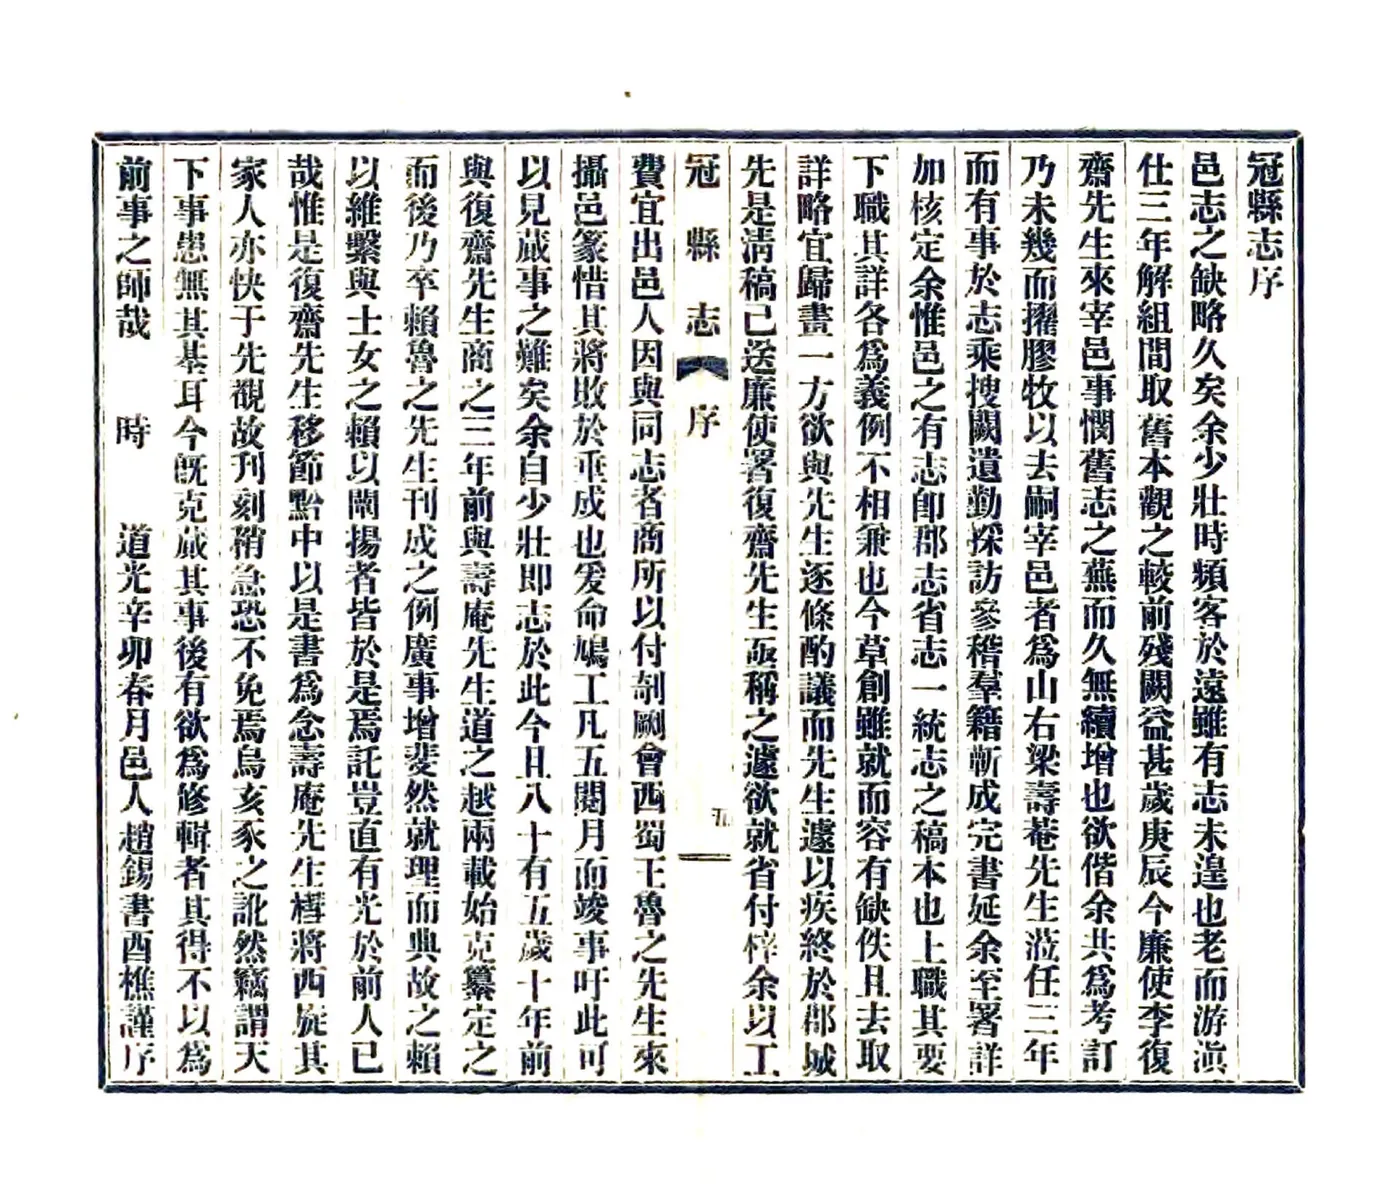 冠縣志序
邑志之缺略久矣余少壯時頻客於遠雖有志未遑也老而游滇
仕三年解組間取舊本觀之較前殘闕益甚歲庚辰今廉使李復
齋先生來宰邑事憫舊志之蕪而久無續增也欲偕余共爲考訂
乃未幾而擢膠牧以去嗣宰邑者爲山右梁壽菴先生蒞任三年
而有事於志乘搜闕遺勤採訪參稽羣籍斬成完書延余至署詳
加核定余惟邑之有志卽郡志省志一統志之稿本也上職其要
下職其詳各爲義例不相兼也今草創雖就而容有缺佚且去取
詳略宜歸畫一方欲與先生逐條酌議而先生遽以疾終於郡城
先是淸稿已送廉使署復齋先生亟稱之遽欲就省付梓余以工
冠縣志 序 五
費宜出邑人因與同志者商所以付剞劂會西蜀王魯之先生來
攝邑篆惜其將敗於垂成也爰命鳩工凡五閱月而竣事吁此可
以見蕆事之難矣余自少壯卽志於此今且八十有五歲十年前
與復齋先生商之三年前與壽庵先生道之越兩載始克纂定之
而後乃卒賴魯之先生刊成之例廣事增斐然就理而典故之賴
以維繫與士女之賴以闡揚者皆於是焉託豈直有光於前人已
哉惟是復齋先生移節黔中以是書爲念壽庵先生櫬將西旋其
家人亦快于先覩故刊刻稍急恐不免焉烏亥豕之訛然竊謂天
下事患無其基耳今旣克蕆其事後有欲爲修輯者其得不以爲
前事之師哉 時 道光辛卯春月邑人趙錫書酉樵謹序